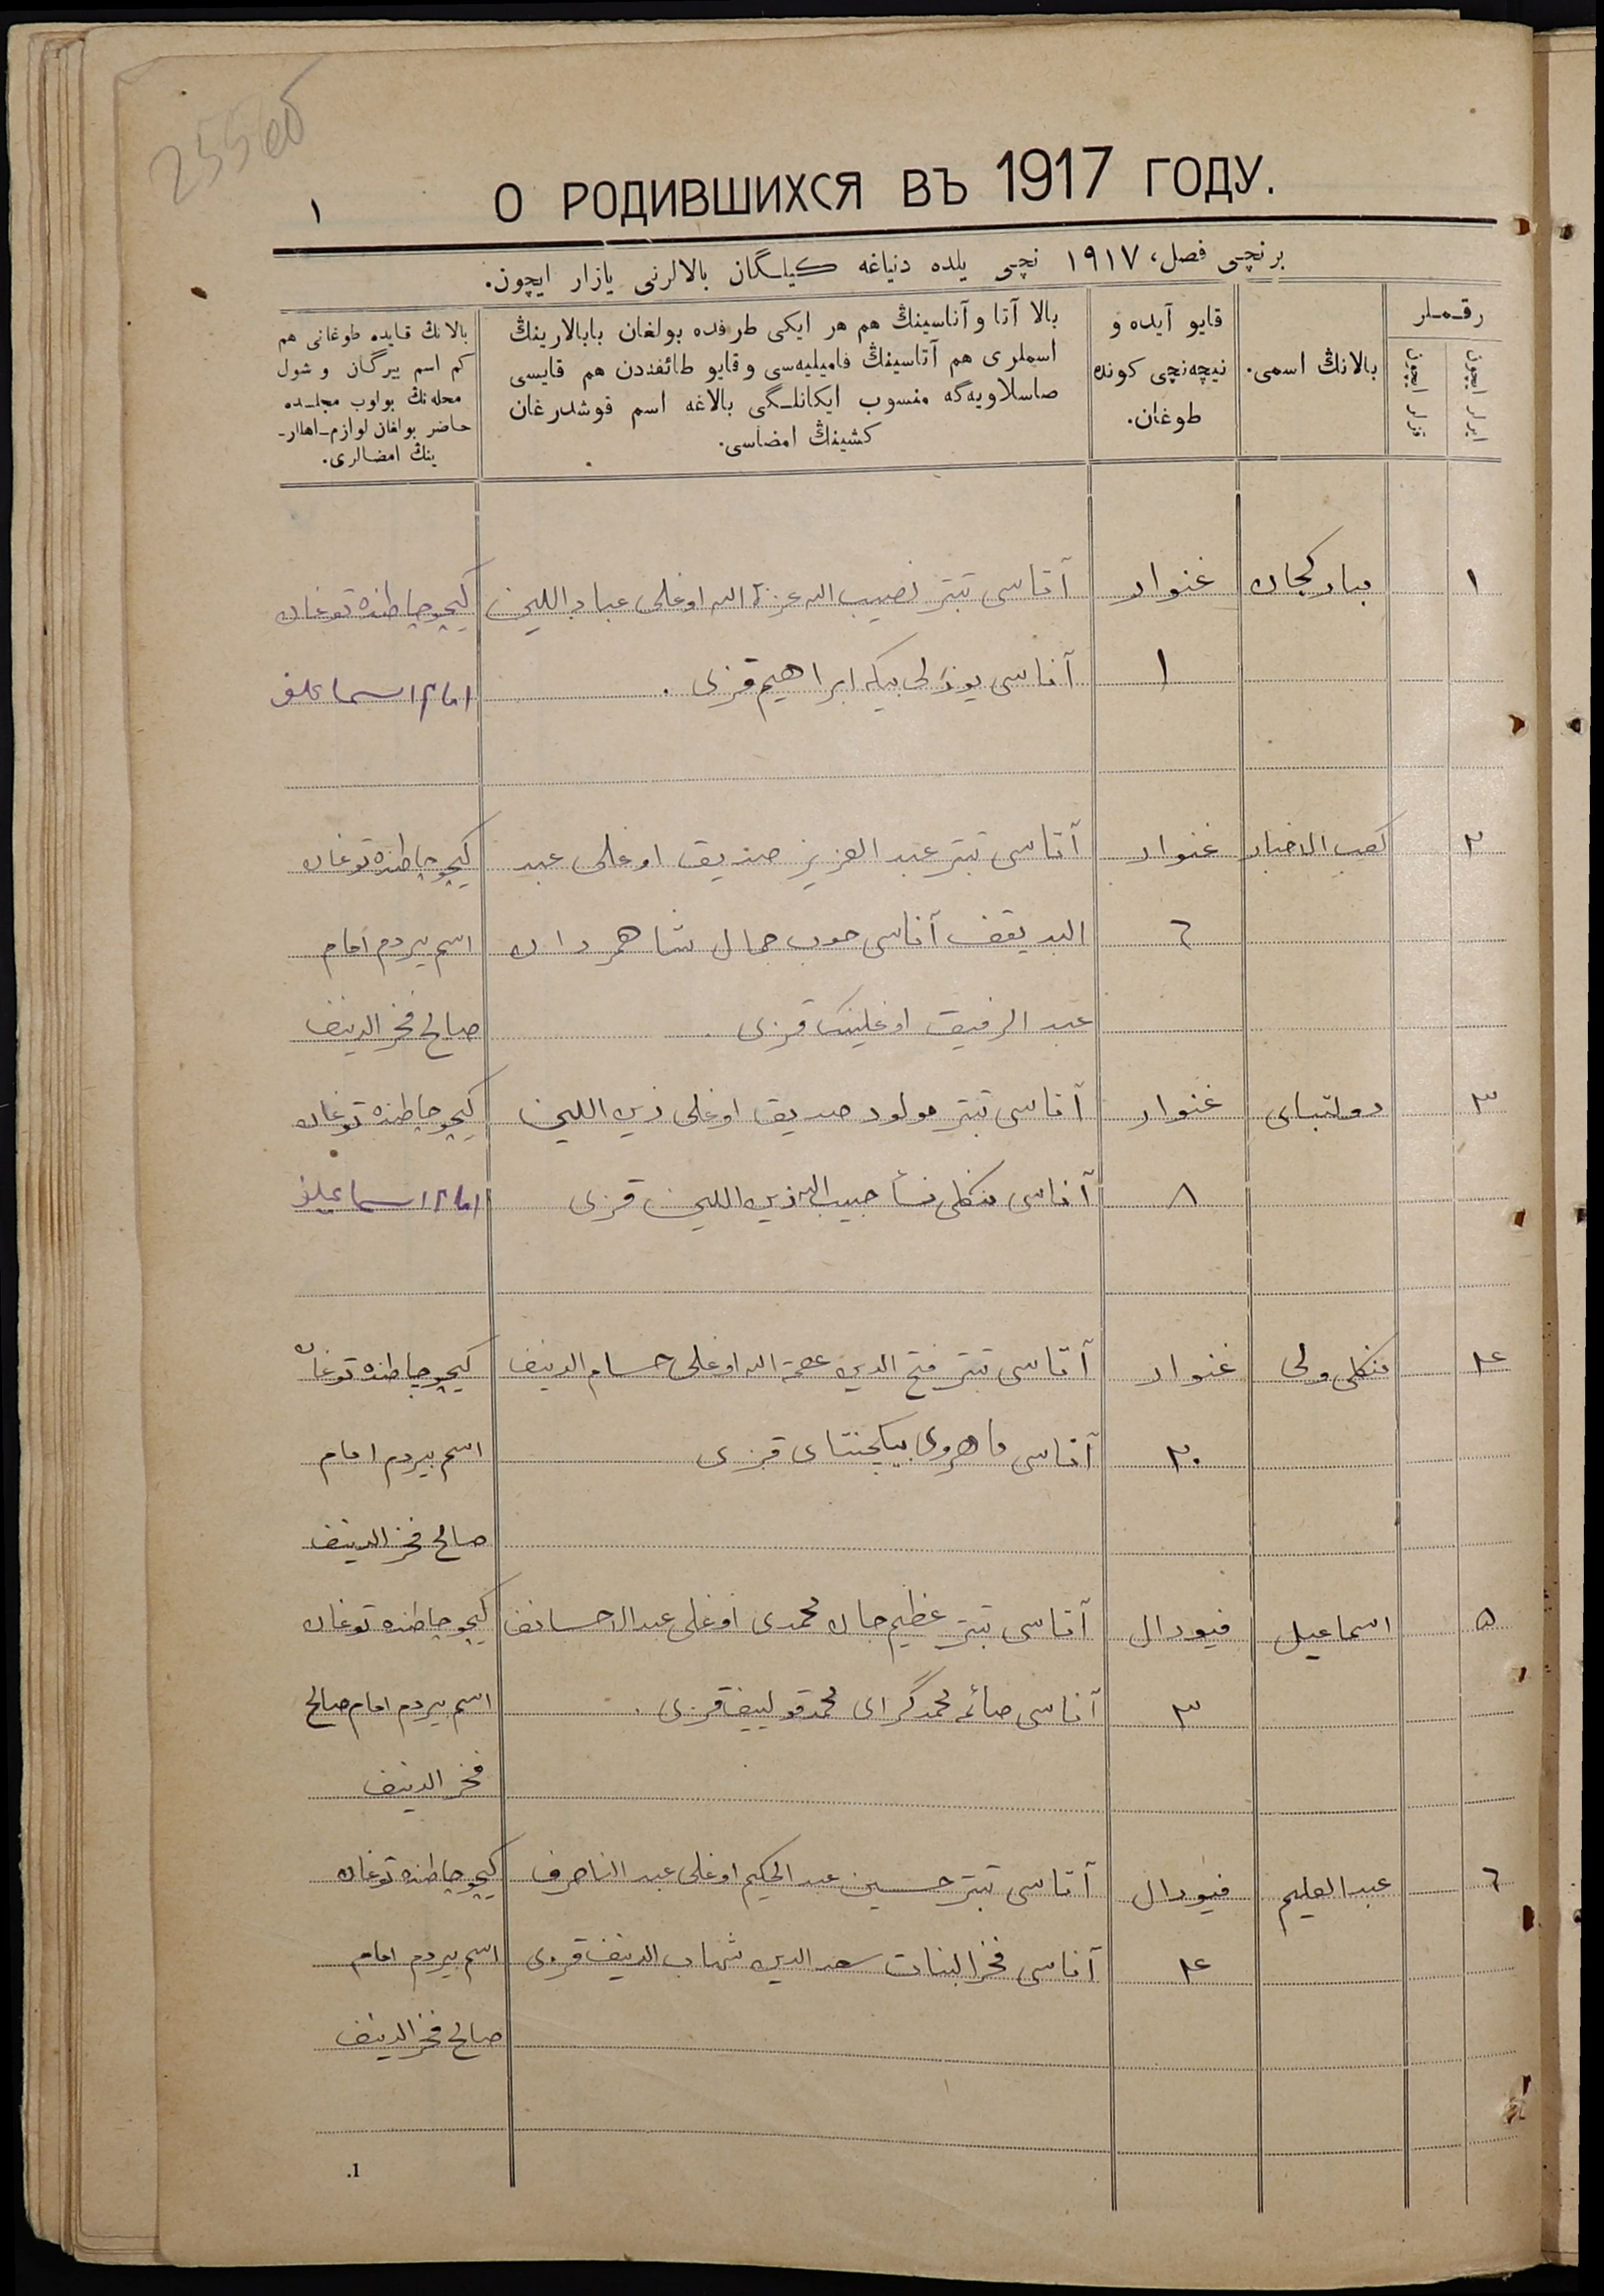 О РОДИВШИХСЯ ВЪ 1917 ГОДУ.
١
برنچی فصل، ١٩١٧ نچی یلده دنیاغه کیلگان بالالرنی یازار ایچون.
رقملر
ایرلر ایچون
قزلر ایچون
بالانڭ اسمی.
قایو آیده و
نیچه‌نچی کونده
طوغان.
بالا آتا و آناسینڭ هم هر ایکی طرفده بولغان بابالارینڭ
اسملری هم آتاسینڭ فامیلیه‌سی و قایو طائفه‌دن هم قایسی
صاسلاویه‌گه منسوب ایکانلگی بالاغه اسم قوشدرغان
کشینڭ امضاسی.
بالانڭ قایده طوغانی هم
کم اسم بیرگان و شول
محله‌نڭ بولوب مجلسده
حاضر بولغان لوازم اهللر-
ینڭ امضالری.
١ مبارکجان غنوار آتاسی تبتر نصیب الله عزة الله اوغلی کیچو چاطنده توغان
١ آناسی یوزلی بیکه ابراهیم قزی. امام اسماعلف
٢ کعب الاخبار غنوار آتاسی تبتر عبد العزیز صدیق اوغلی عبد کیچو چاطنده توغان
٦ البدیقف آناسی حوب جمال شاهمردان اسم بیردم امام
عبد الرفیق اوغلینک قزی. صالح فخر الدینف
٣ دولتبای غنوار آتاسی تبتر مولود صدیق اوغلی زین اللین کیچو چاطنده توغان
٨ آناسی منکلی نسأ حبیب الله زین اللین قزی امام اسماعیلف
٤ منکلی ولی غنوار آتاسی تبتر فتح الدین عصمة الله اوغلی حسام الدینف کیچو چاطنده توغان
٢٠ آناسی ماهروی بیکجنتای قزی اسم بیردم امام
صالح فخر الدینف
٥ اسماعیل فیورال آتاسی تبتر عظیم جان محمدی اوغلی عبد الاحسانف کیچو چاطنده توغان
٣ آناسی صائمه محمدگرای محمدقولییف قزی. اسم بیردم امام صالح
فخر الدینف
٦ عبد العلیم فیورال آتاسی تبتر حسین عبد الحکیم اوغلی عبد الناصرف کیچو چاطنده توغان
٤ آناسی فخر البنات سعد الدین شهاب الدینف قزی اسم بیردم امام
صالح فخر الدینف
1.